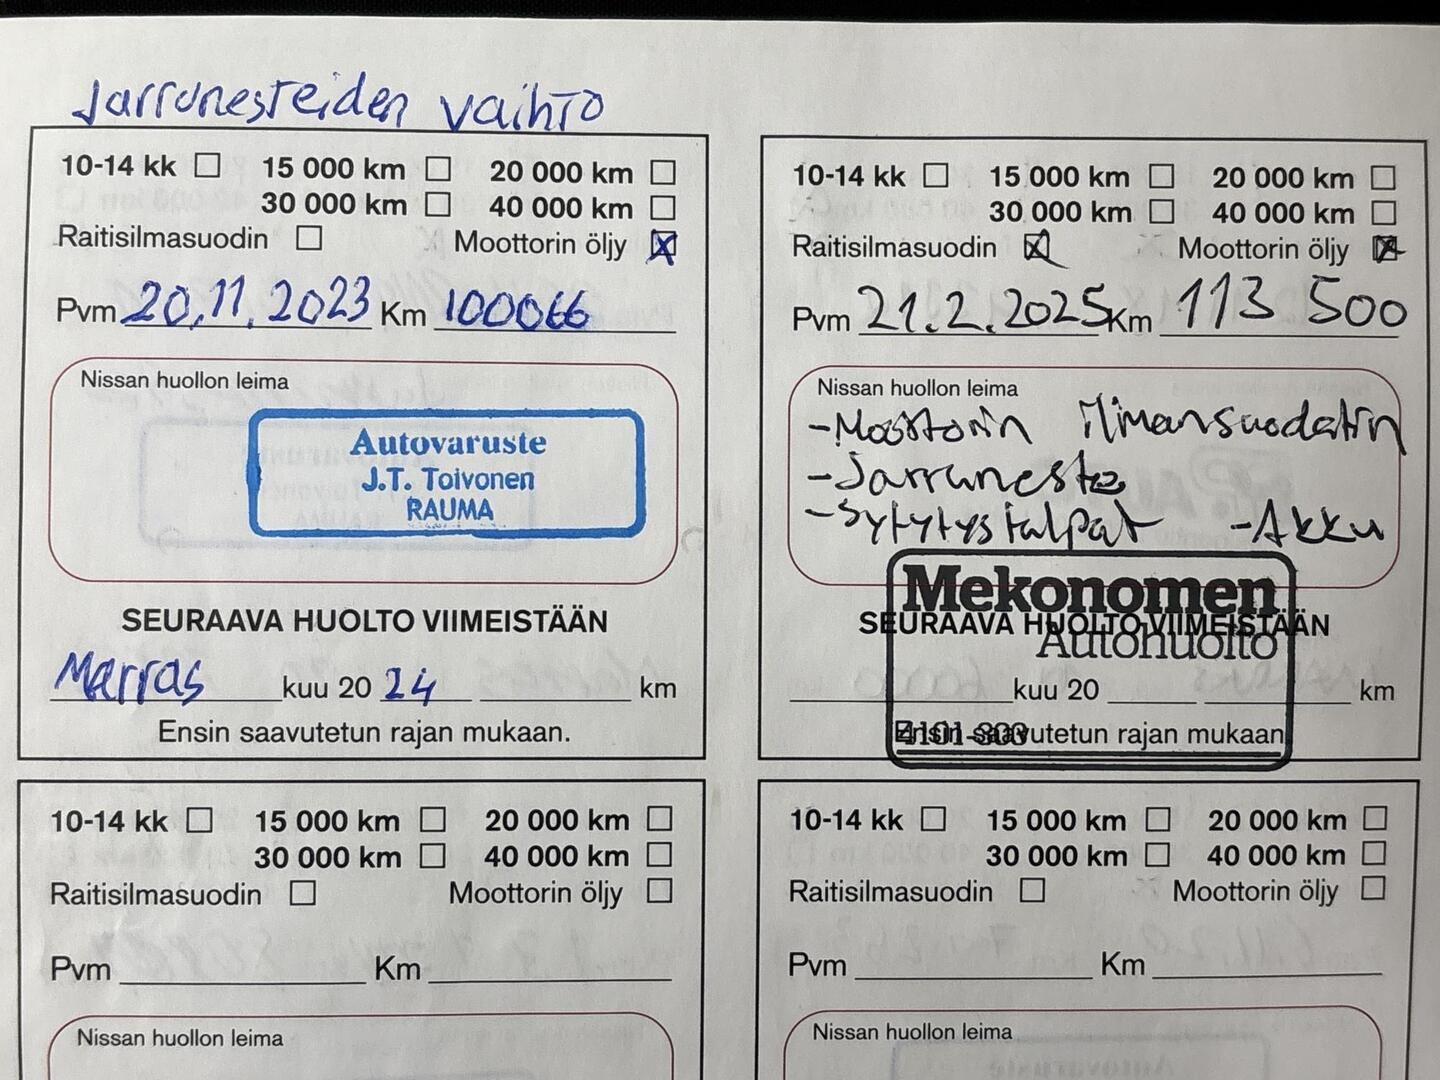 Jarrunesteiden vaihto
10-14 kk 15 000 km 20 000 km
30 000 km 40 000 km
Raitisilmasuodin Moottorin öljy
Pvm 20.11.2023 Km 100066
Nissan huollon leima
Autovaruste
J.T. Toivonen
RAUMA
SEURAAVA HUOLTO VIIMEISTÄÄN
Marras kuu 20 24 km
Ensin saavutetun rajan mukaan.
10-14 kk 15 000 km 20 000 km
30 000 km 40 000 km
Raitisilmasuodin Moottorin öljy
Pvm 21.2.2025 Km 113 500
Nissan huollon leima
-Moottorin ilmansuodatin
-Jarruneste
-Sytytystulpat -Akku
Mekonomen
SEURAAVA HUOLTO VIIMEISTÄÄN
Autohuolto
kuu 20 km
Ensin saavutetun rajan mukaan.
4101-303
10-14 kk 15 000 km 20 000 km
30 000 km 40 000 km
Raitisilmasuodin Moottorin öljy
Pvm Km
Nissan huollon leima
10-14 kk 15 000 km 20 000 km
30 000 km 40 000 km
Raitisilmasuodin Moottorin öljy
Pvm Km
Nissan huollon leima